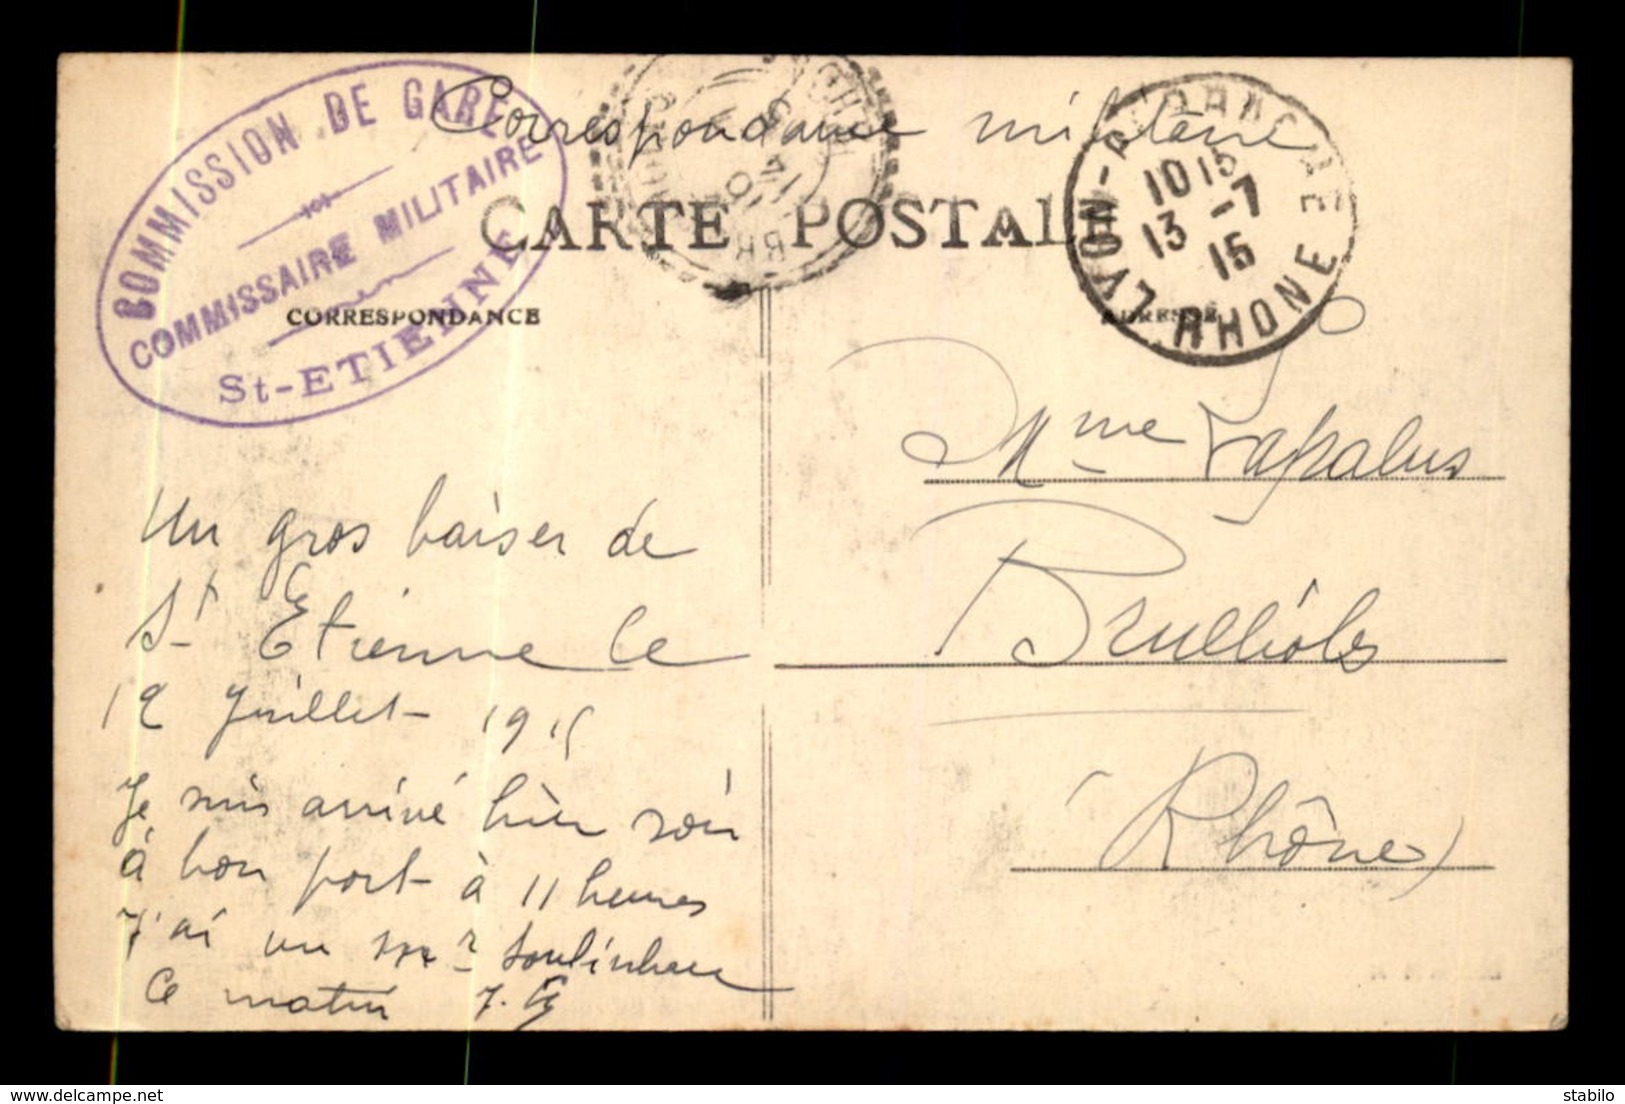 COMMISSION DE GARE
COMMISSAIRE MILITAIRE
St-ETIENNE
Correspondance militaire
CARTE POSTALE
LYON RHONE
10 15
13 -7
15
CORRESPONDANCE
ADRESSE
Mme Lapalus
Brullioles
(Rhône)
Un gros baiser de
St Etienne le
12 Juillet 1915
Je suis arrivé hier soir
à bon port à 11 heures
J'ai vu
ce matin
delcampe.net
stabilo